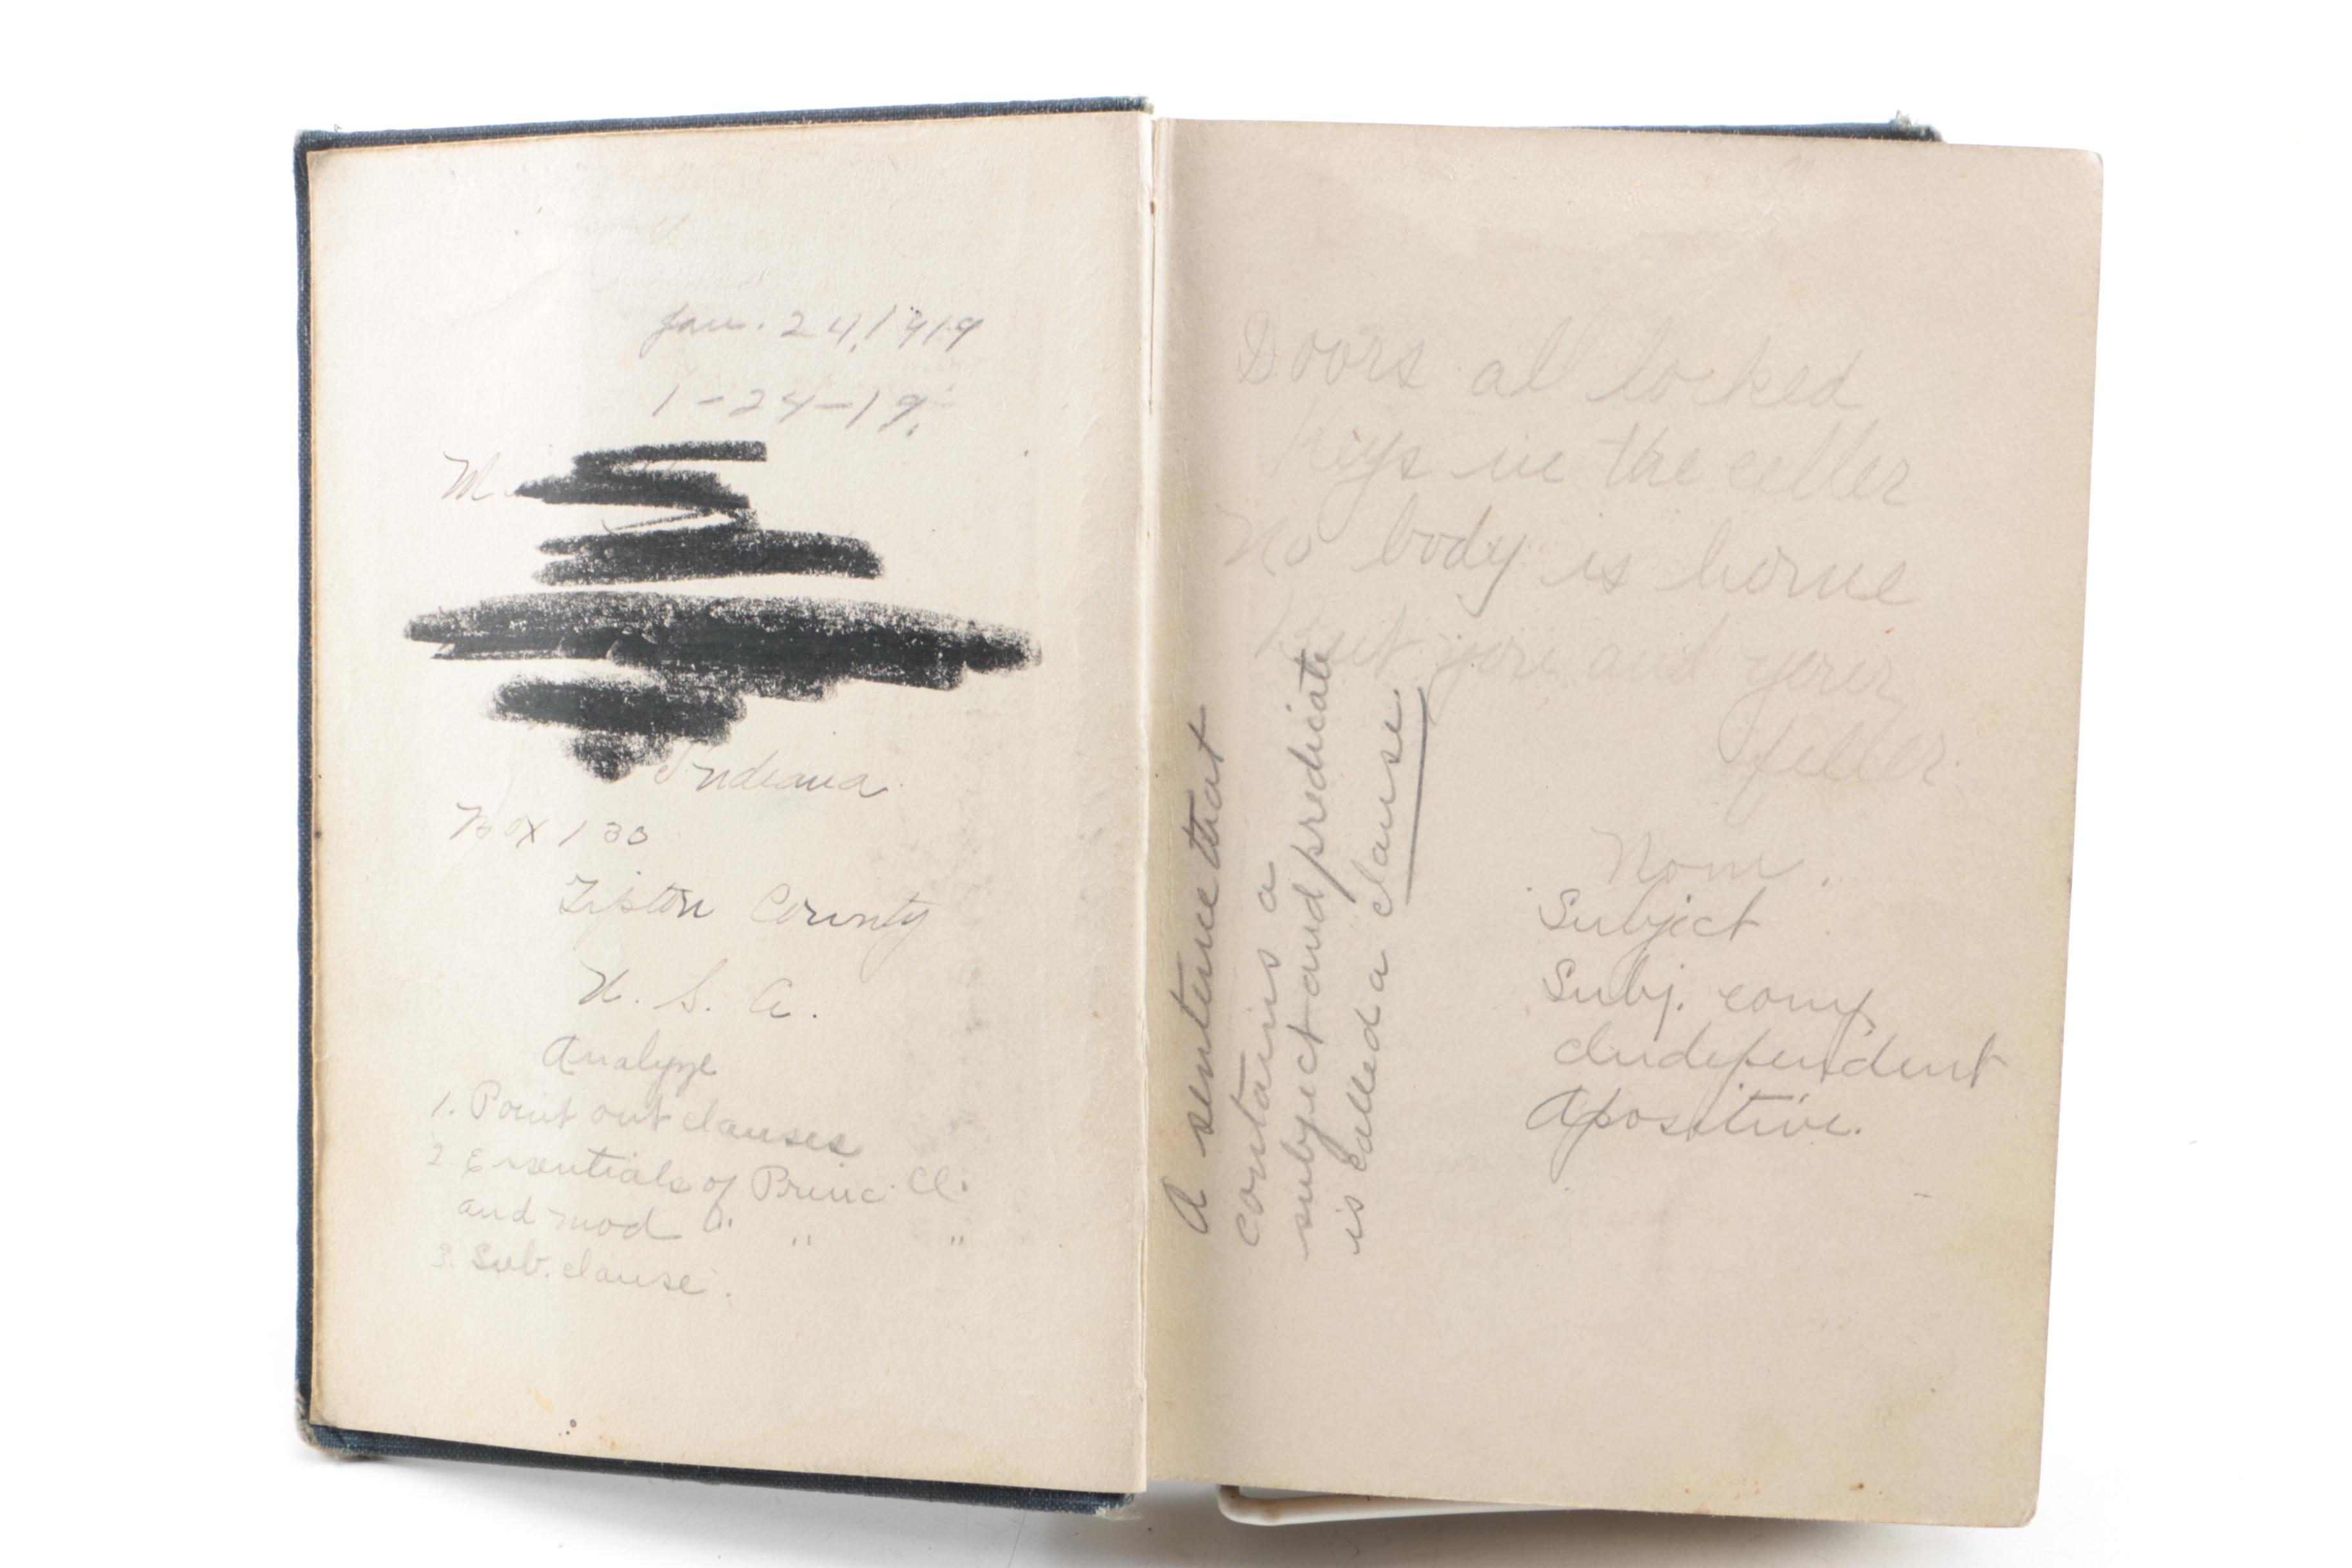 Jan. 24, 1919
1-24-19.
M
Indiana
Box 133
Tipton County
U. S. A.
Analyze
1. Point out clauses
2. Essentials of Princ. Cl.
and mod " " "
3. Sub. clause.
Doors all locked
Keys in the celler
No body is home
but you and your
feller
A sentence that
contains a
subject and predicate
is called a clause
Nom.
Subject
Subj. comp
Independent
Apositive.